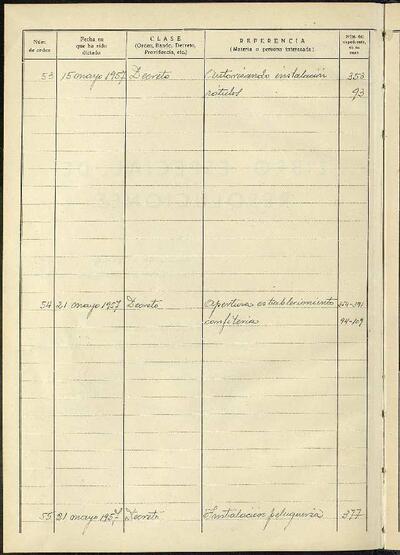 Núm. de orden
Fecha en que ha sido dictado
CLASE (Orden, Bando, Decreto, Providencia, etc.)
REFERENCIA (Materia o persona interesada)
Núm. del expediente, en su caso
53 15 mayo 1957 Decreto Autorizando instalación 356
rotulos 93
54 21 mayo 1957 Decreto Apertura establecimiento 354-391
confiteria 94-109
55 21 mayo 1957 Decreto Instalacion peluqueria 377